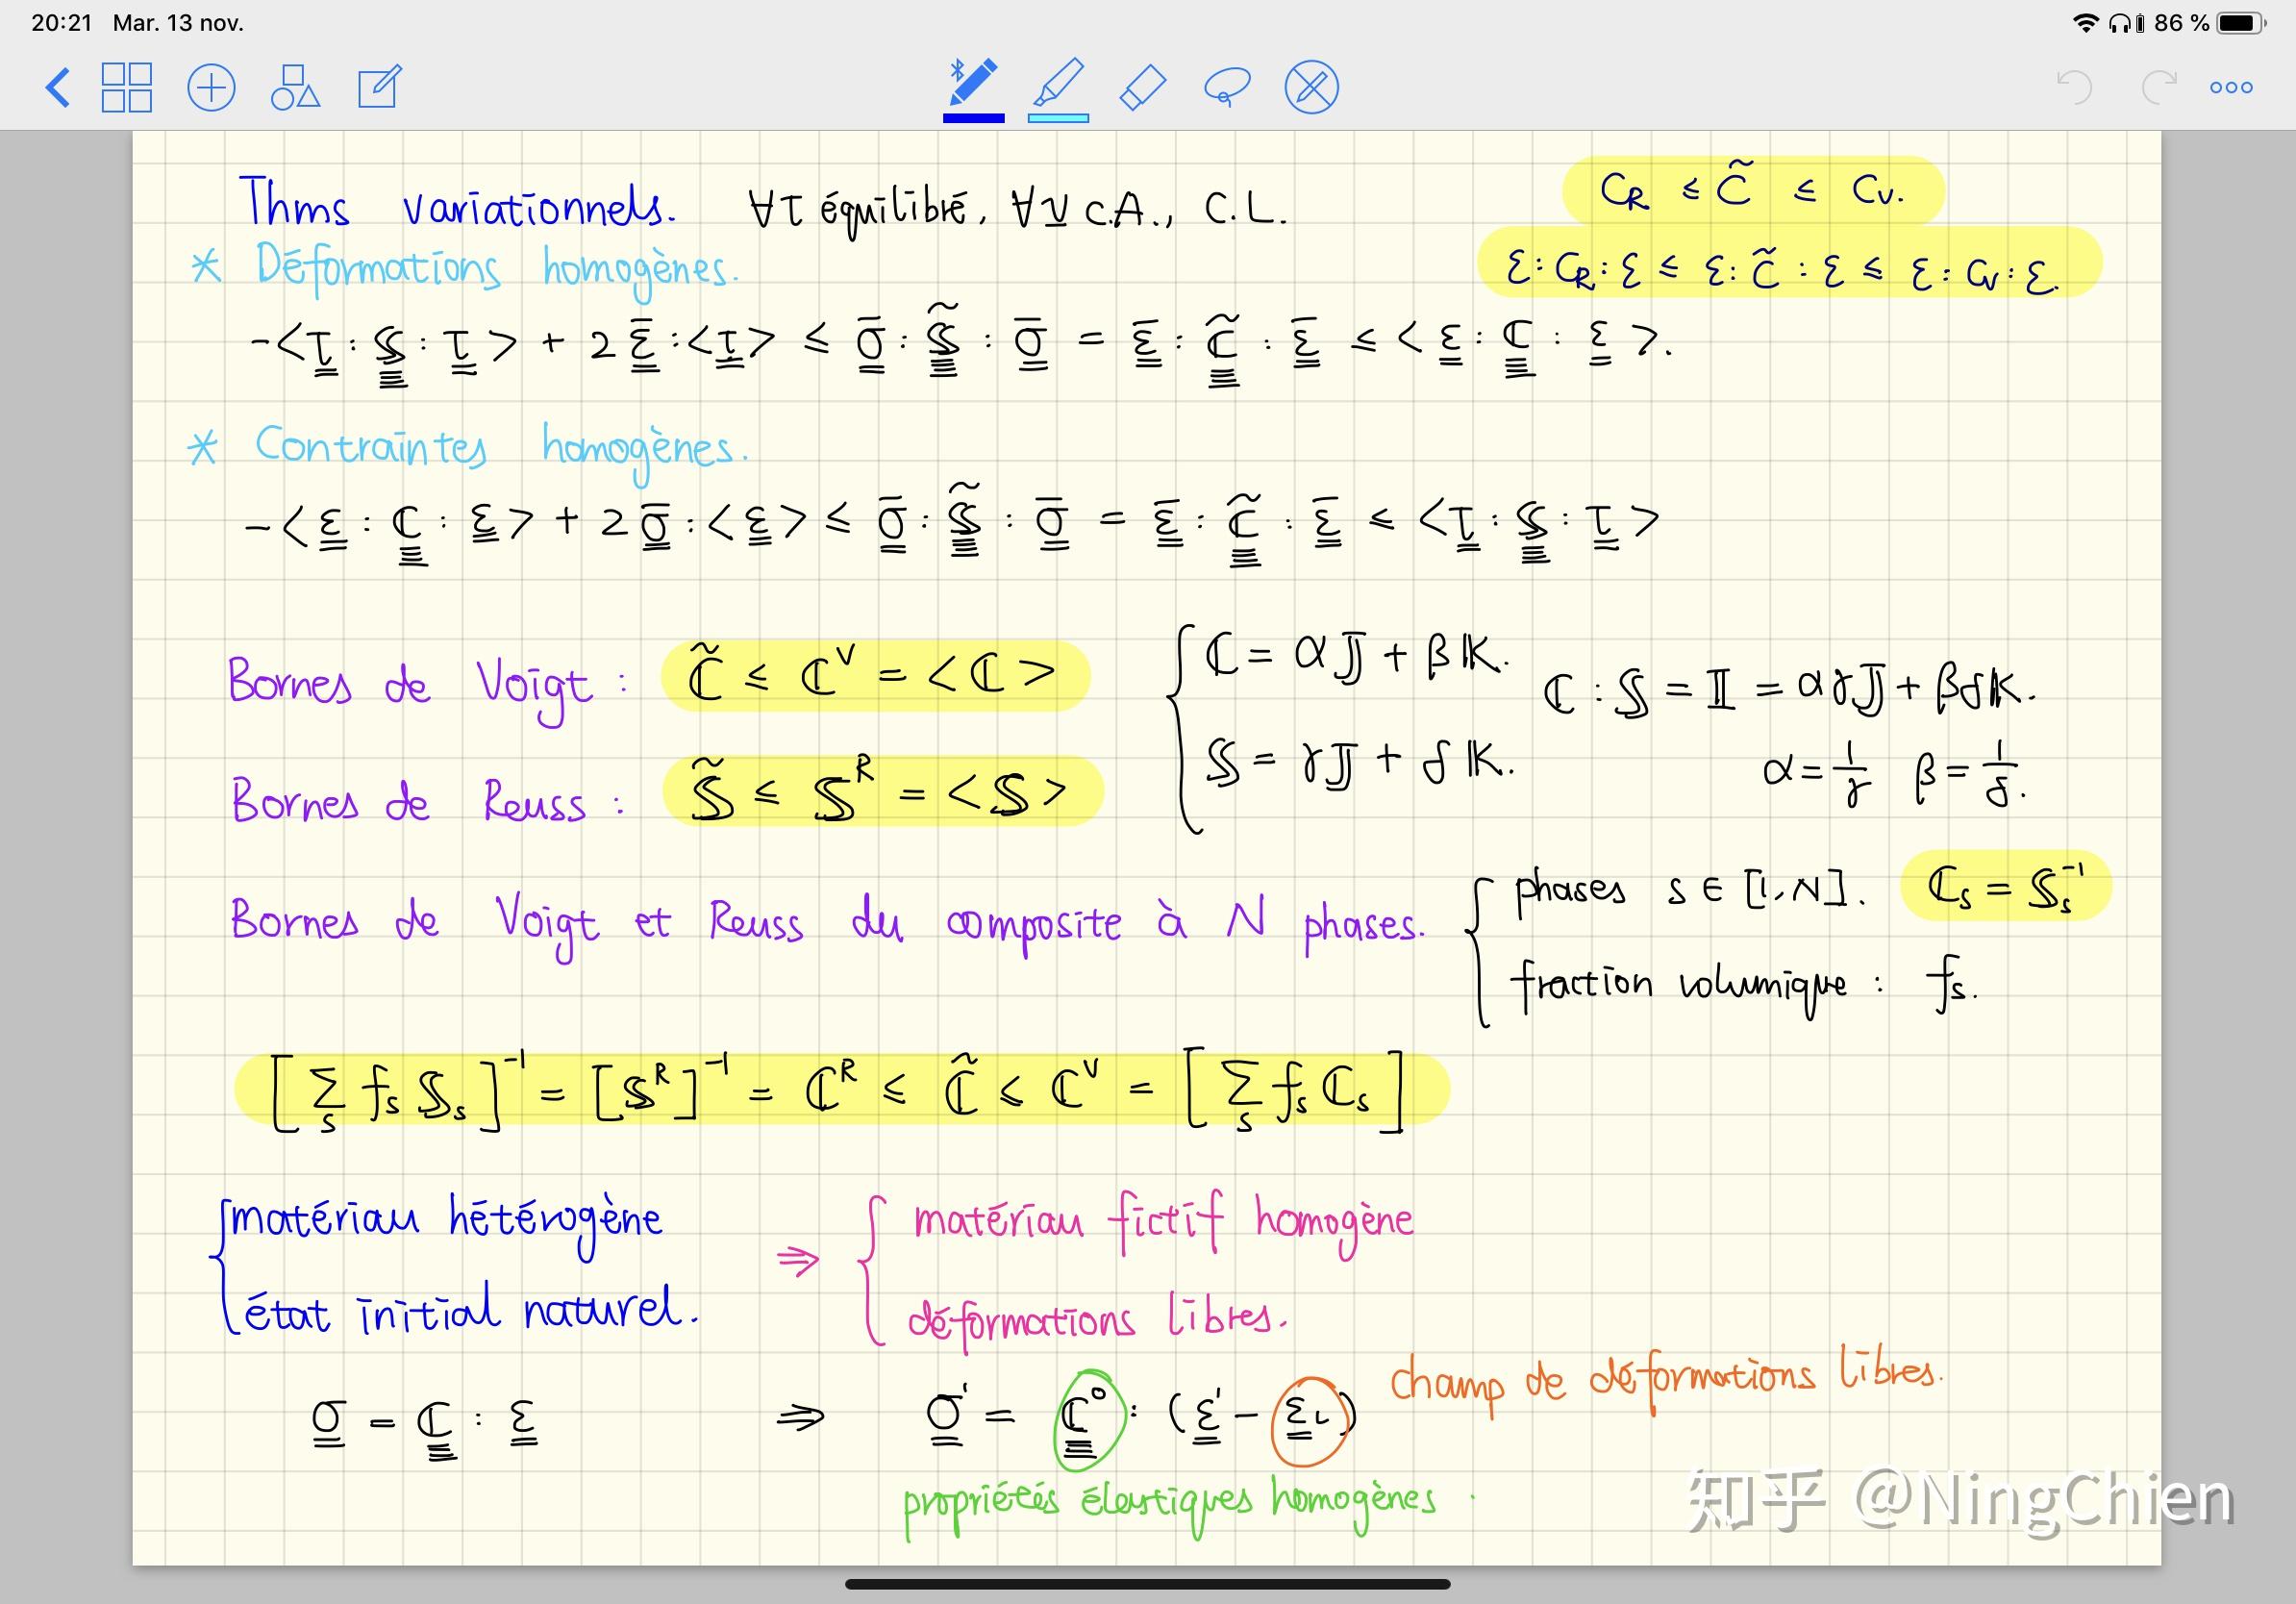 20:21 Mar. 13 nov. 86 %
Thms variationnels. ∀τ équilibré, ∀v C.A., C.L.
C_R ≤ C̃ ≤ C_V.
* Déformations homogènes.
ε:C_R:ε ≤ ε:C̃:ε ≤ ε:C_V:ε.
-<τ:𝕊:τ> + 2ε̄:<τ> ≤ σ̄:𝕊̃:σ̄ = ε̄:ℂ̃:ε̄ ≤ <ε:ℂ:ε>.
* Contraintes homogènes.
-<ε:ℂ:ε> + 2σ̄:<ε> ≤ σ̄:𝕊̃:σ̄ = ε̄:ℂ̃:ε̄ ≤ <τ:𝕊:τ>
Bornes de Voigt : ℂ̃ ≤ ℂ^V = <ℂ>
Bornes de Reuss : 𝕊̃ ≤ 𝕊^R = <𝕊>
{ ℂ = α𝕁 + β𝕂.
𝕊 = γ𝕁 + δ𝕂.
ℂ:𝕊 = 𝕀 = αγ𝕁 + βδ𝕂.
α = 1/γ β = 1/δ.
Bornes de Voigt et Reuss du composite à N phases.
{ phases s ∈ [1,N]. ℂ_s = 𝕊_s^-1
fraction volumique : f_s.
[Σ_s f_s 𝕊_s]^-1 = [𝕊^R]^-1 = ℂ^R ≤ ℂ̃ ≤ ℂ^V = [Σ_s f_s ℂ_s]
{ matériau hétérogène
état initial naturel.
⇒ { matériau fictif homogène
déformations libres.
σ = ℂ : ε ⇒ σ' = ℂ⁰ : (ε' - ε_L)
champ de déformations libres.
propriétés élastiques homogènes.
知乎 @NingChien